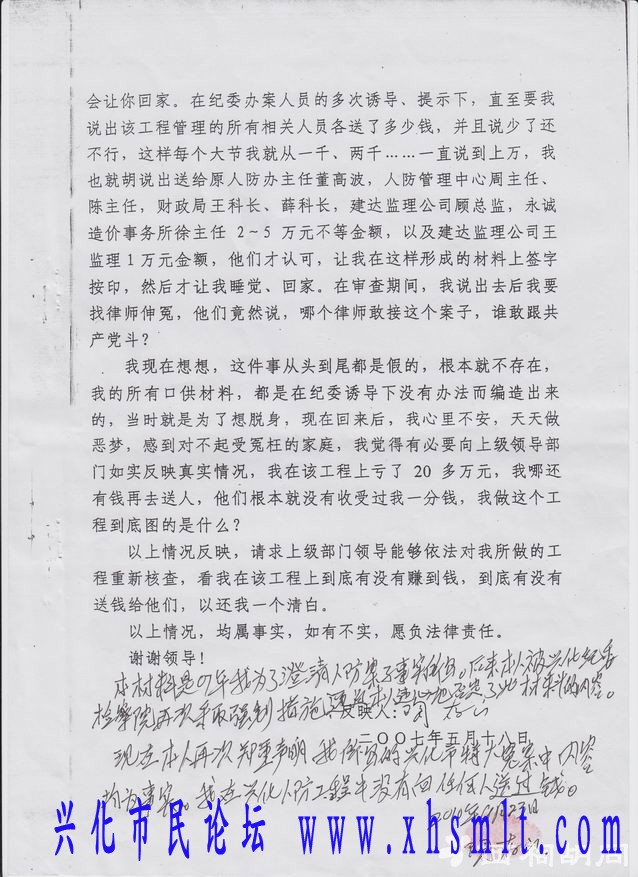 会让你回家。在纪委办案人员的多次诱导、提示下，直至要我
说出该工程管理的所有相关人员各送了多少钱，并且说少了还
不行，这样每个大节我就从一千、两千……一直说到上万，我
也就胡说出送给原人防办主任董高波，人防管理中心周主任、
陈主任，财政局王科长、薛科长，建达监理公司顾总监，永诚
造价事务所徐主任 2~5 万元不等金额，以及建达监理公司王
监理 1 万元金额，他们才认可，让我在这样形成的材料上签字
按印，然后才让我睡觉、回家。在审查期间，我说出去后我要
找律师伸冤，他们竟然说，哪个律师敢接这个案子，谁敢跟共
产党斗？
我现在想想，这件事从头到尾都是假的，根本就不存在，
我的所有口供材料，都是在纪委诱导下没有办法而编造出来
的，当时就是为了想脱身，现在回来后，我心里不安，天天做
恶梦，感到对不起受冤枉的家庭，我觉得有必要向上级领导部
门如实反映真实情况，我在该工程上亏了 20 多万元，我哪还
有钱再去送人，他们根本就没有收受过我一分钱，我做这个工
程到底图的是什么？
以上情况反映，请求上级部门领导能够依法对我所做的工
程重新核查，看我在该工程上到底有没有赚到钱，到底有没有
送钱给他们，以还我一个清白。
以上情况，均属事实，如有不实，愿负法律责任。
谢谢领导！
本材料是07年我为了澄清人防案子事实的。后来本人被兴化纪委
检察院再次采取强制措施 本人违心地否定了此材料的内容。
反映人：
二〇〇七年五月十八日
现在本人再次郑重声明 我 的兴化市特大冤案中内容
均为事实。我在兴化人防工程中没有向任何人送过钱。
兴化市民论坛 www.xhsmlt.com